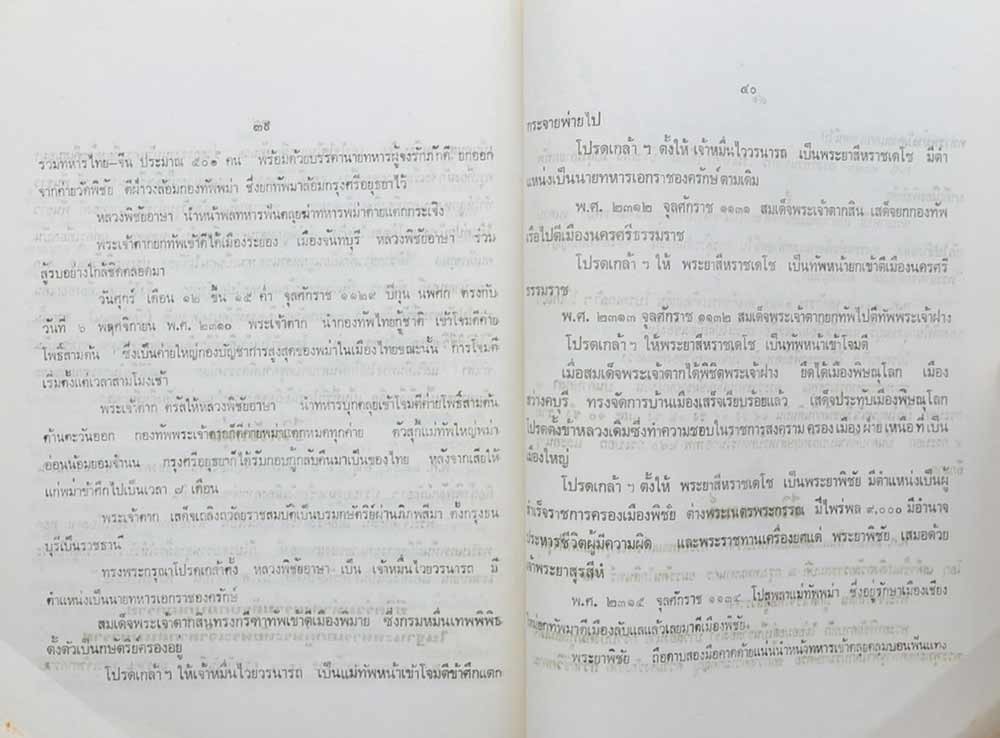 ๓๙
รวมทหารไทย-จีน ประมาณ ๕๐๑ คน พร้อมด้วยบรรดานายทหารผู้จงรักภักดี ยกออก
จากค่ายวัดพิชัย ตีฝ่าวงล้อมกองทัพพม่า ซึ่งยกทัพมาล้อมกรุงศรีอยุธยาไว้
หลวงพิชัยอาษา นำหน้าพลทหารฟันตลุยฆ่าทหารพม่าตายแตกกระเจิง
พระเจ้าตากยกทัพเข้าตีได้เมืองระยอง เมืองจันทบุรี หลวงพิชัยอาษา ร่วม
สู้รบอย่างใกล้ชิดตลอดมา
วันศุกร์ เดือน ๑๒ ขึ้น ๑๕ ค่ำ จุลศักราช ๑๑๒๙ ปีกุน นพศก ตรงกับ
วันที่ ๖ พฤศจิกายน พ.ศ. ๒๓๑๐ พระเจ้าตาก นำกองทัพไทยกู้ชาติ เข้าโจมตีค่าย
โพธิ์สามต้น ซึ่งเป็นค่ายใหญ่กองบัญชาการสูงสุดของพม่าในเมืองไทยขณะนั้น การโจมตี
เริ่มตั้งแต่เวลาสามโมงเช้า
พระเจ้าตาก ตรัสให้หลวงพิชัยอาษา นำทหารบุกตลุยเข้าโจมตีค่ายโพธิ์สามต้น
ด้านตะวันออก กองทัพพระเจ้าตากก็ตีค่ายพม่าแตกหมดทุกค่าย ตัวสุกี้แม่ทัพใหญ่พม่า
อ่อนน้อมยอมจำนน กรุงศรีอยุธยาก็ได้รับกอบกู้กลับคืนมาเป็นของไทย หลังจากเสียให้
แก่พม่าข้าศึกไปเป็นเวลา ๗ เดือน
พระเจ้าตาก เสด็จเถลิงถวัลยราชสมบัติเป็นบรมกษัตริย์ผ่านภิภพสีมา ตั้งกรุงธน
บุรีเป็นราชธานี
ทรงพระกรุณาโปรดเกล้าตั้ง หลวงพิชัยอาษา เป็น เจ้าหมื่นไวยวรนารถ มี
ตำแหน่งเป็นนายทหารเอกราชองครักษ์
สมเด็จพระเจ้าตากสินทรงกรีฑาทัพเข้าตีเมืองพิมาย ซึ่งกรมหมื่นเทพพิพิธ
ตั้งตัวเป็นกษัตริย์ครองอยู่
โปรดเกล้า ฯ ให้เจ้าหมื่นไวยวรนารถ เป็นแม่ทัพหน้าเข้าโจมตีข้าศึกแตก
๔๐
กระจายพ่ายไป
โปรดเกล้า ฯ ตั้งให้ เจ้าหมื่นไวยวรนารถ เป็นพระยาสีหราชเดโช มีตำ
แหน่งเป็นนายทหารเอกราชองครักษ์ ตามเดิม
พ.ศ. ๒๓๑๒ จุลศักราช ๑๑๓๑ สมเด็จพระเจ้าตากสิน เสด็จยกกองทัพ
เรือไปตีเมืองนครศรีธรรมราช
โปรดเกล้า ฯ ให้ พระยาสีหราชเดโช เป็นทัพหน้ายกเข้าตีเมืองนครศรี
ธรรมราช
พ.ศ. ๒๓๑๓ จุลศักราช ๑๑๓๒ สมเด็จพระเจ้าตากยกทัพไปตีทัพพระเจ้าฝาง
โปรดเกล้า ฯ ให้พระยาสีหราชเดโช เป็นทัพหน้าเข้าโจมตี
เมื่อสมเด็จพระเจ้าตากได้พิชิตพระเจ้าฝาง ยึดได้เมืองพิษณุโลก เมือง
สว่างคบุรี ทรงจัดการบ้านเมืองเสร็จเรียบร้อยแล้ว เสด็จประทับเมืองพิษณุโลก
โปรดตั้งข้าหลวงเดิมซึ่งทำความชอบในราชการสงคราม ครองเมือง ฝ่ายเหนือ ที่ เป็น
เมืองใหญ่
โปรดเกล้า ฯ ตั้งให้ พระยาสีหราชเดโช เป็นพระยาพิชัย มีตำแหน่งเป็นผู้
สำเร็จราชการครองเมืองพิชัย ต่างพระเนตรพระกรรณ มีไพร่พล ๙,๐๐๐ มีอำนาจ
ประหารชีวิตผู้มีความผิด และพระราชทานเครื่องยศแด่ พระยาพิชัย เสมอด้วย
เจ้าพระยาสุรสีห์
พ.ศ. ๒๓๑๕ จุลศักราช ๑๑๓๔ โปสุพลาแม่ทัพพม่า ซึ่งอยู่รักษาเมืองเชียง
ใหม่ยกทัพมาตีเมืองลับแลแล้วเลยมาตีเมืองพิชัย
พระยาพิชัย ถือดาบสองมือคาดด้ายแน่นนำหน้าทหารเข้าตลุยคลุมบอนฟันแทง